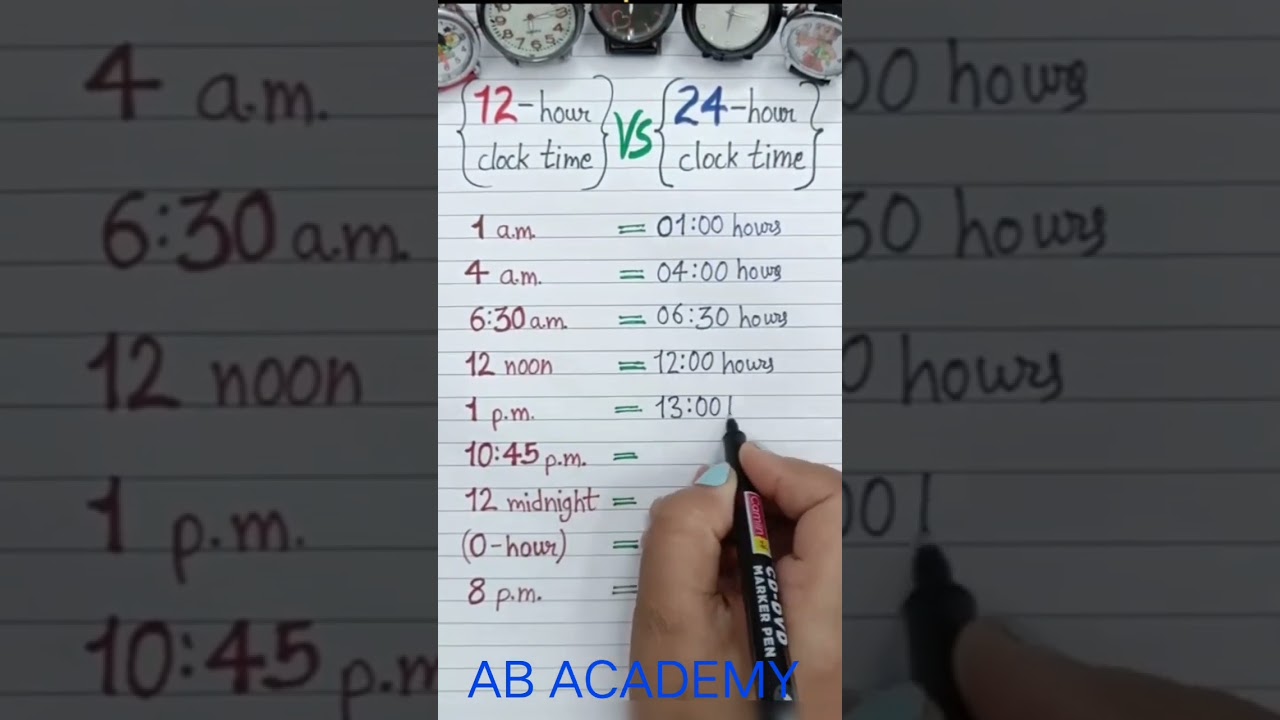 12-hour clock time VS 24-hour clock time
1 a.m. = 01:00 hours
4 a.m. = 04:00 hours
6:30 a.m. = 06:30 hours
12 noon = 12:00 hours
1 p.m. = 13:00
10:45 p.m. =
12 midnight =
(0-hour) =
8 p.m. =
Camlin
CD-DVD
MARKER PEN
AB ACADEMY
4 a.m.
00 hours
6:30 a.m.
30 hours
12 noon
0 hours
1 p.m.
00
10:45 p.m